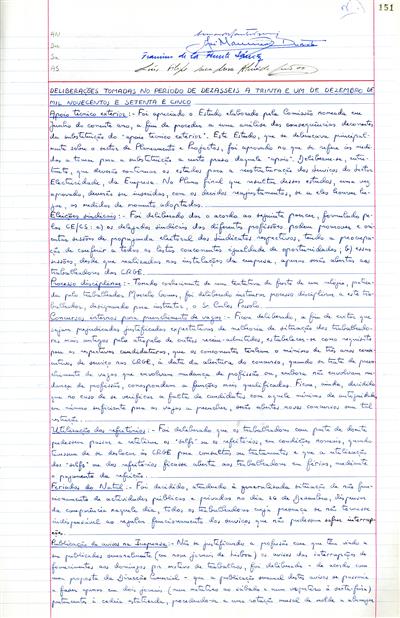 151
DELIBERAÇÕES TOMADAS NO PERÍODO DE DEZASSEIS A TRINTA E UM DE DEZEMBRO DE
MIL NOVECENTOS E SETENTA E CINCO
Apoio técnico externo:- Foi apreciado o Estudo elaborado pela Comissão nomeada em
Junho do corrente ano, a fim de proceder a uma análise das consequências decorrentes
da substituição do "apoio técnico externo". Este Estudo, que se debruçava principal-
mente sobre o sector de Planeamento e Projectos, foi aprovado no que se refere às medi-
das a tomar para a substituição a curto prazo daquele "apoio". Deliberou-se, entre-
tanto, que devem continuar os estudos para a reestruturação dos serviços do sector
Electricidade, da Empresa. No Plano final que resultar desses estudos, uma vez
aprovado, deverão ser inseridas, com os devidos reajustamentos, se a eles houver lu-
gar, as medidas de momento adoptadas.
Eleições sindicais:- Foi deliberado dar o acordo ao seguinte parecer, formulado pe-
los CE/CS: a) os delegados sindicais das diferentes profissões podem promover e ori-
entar sessões de propaganda eleitoral dos sindicatos respectivos, tendo a preocupa-
ção de conferir a todas as listas concorrentes igualdade de oportunidades; b) essas
sessões, desde que realizadas nas instalações da empresa, apenas serão abertas aos
trabalhadores das CRGE.
Processo disciplinar:- Tomado conhecimento de uma tentativa de furto de um relógio, prati-
cada pelo trabalhador Marcelo Gomes, foi deliberado instaurar processo disciplinar a este tra-
balhador, designando para instrutor, o Sr. Carlos
Concursos internos para preenchimento de vagas:- Ficou deliberado, a fim de evitar que
sejam prejudicadas justificadas expectativas de melhoria de situação dos trabalhado-
res mais antigos pelo atropelo de outros recém-admitidos, estabelecer-se como requisito
para as respectivas candidaturas, que os concorrentes tenham o mínimo de três anos conse-
cutivos de serviço nas CRGE, à data da abertura do concurso, quando se trate de preen-
chimento de vagas que envolvam mudança de profissão ou, embora não envolvam mu-
dança de profissão, correspondam a funções mais qualificadas. Ficou, ainda, decidido
que no caso de se verificar a falta de candidatos com aquele mínimo de antiguidade,
em número suficiente para as vagas a preencher, serão abertos novos concursos sem tal
restrição.
Utilização dos refeitórios:- Foi deliberado que os trabalhadores com parte de doente
pudessem passar a utilizar os "selfs" ou os refeitórios, em condições normais, quando
tivessem de se deslocar às CRGE para consultas ou tratamentos e que a utilização
dos "selfs" ou dos refeitórios ficasse aberta aos trabalhadores em férias, mediante
o pagamento da refeição.
Feriados do Natal:- Foi decidido, atendendo à generalizada situação de não fun-
cionamento de actividades públicas e privadas no dia 26 de Dezembro, dispensar
da comparência naquele dia, todos os trabalhadores cuja presença se não tornasse
indispensável ao regular funcionamento dos serviços que não pudessem sofrer interrup-
ção.
Publicação de avisos na Imprensa:- Não se justificando a profusão com que têm vindo a
ser publicados semanalmente (em nove jornais de Lisboa) os avisos das interrupções de
fornecimento aos domingos por motivo de trabalhos, foi deliberado - de acordo com
uma proposta da Direcção Comercial - que a publicação semanal destes avisos se passaria
a fazer apenas em dois jornais (um matutino ao sábado e um vespertino à sexta-feira)